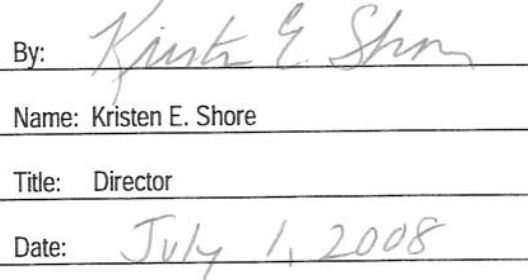 By: Kristen E. Shore
Name: Kristen E. Shore
Title: Director
Date: July 1, 2008